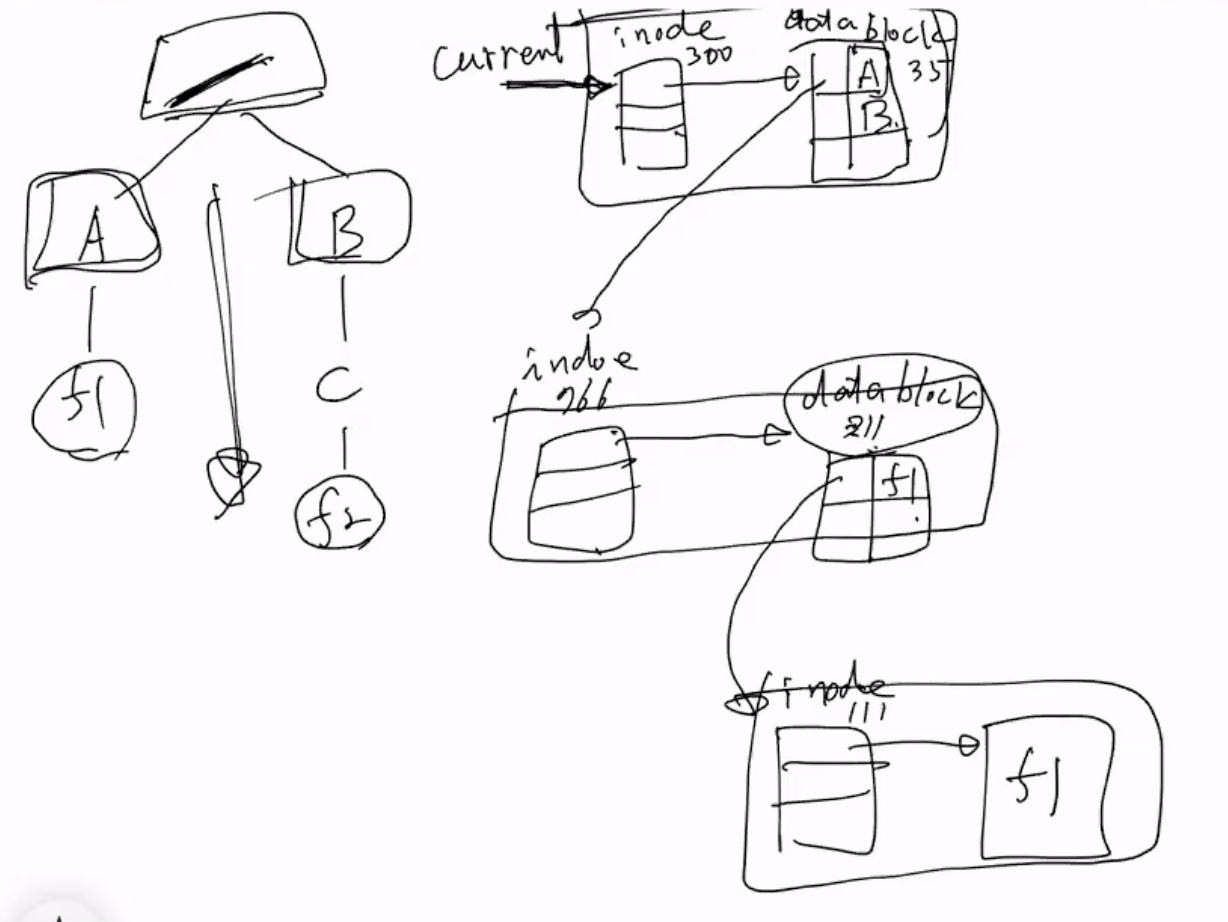 /
A
B
f1
C
f2
current
inode
300
data block
35
A
B.
indoe
766
data block
211
f1
inode
111
f1